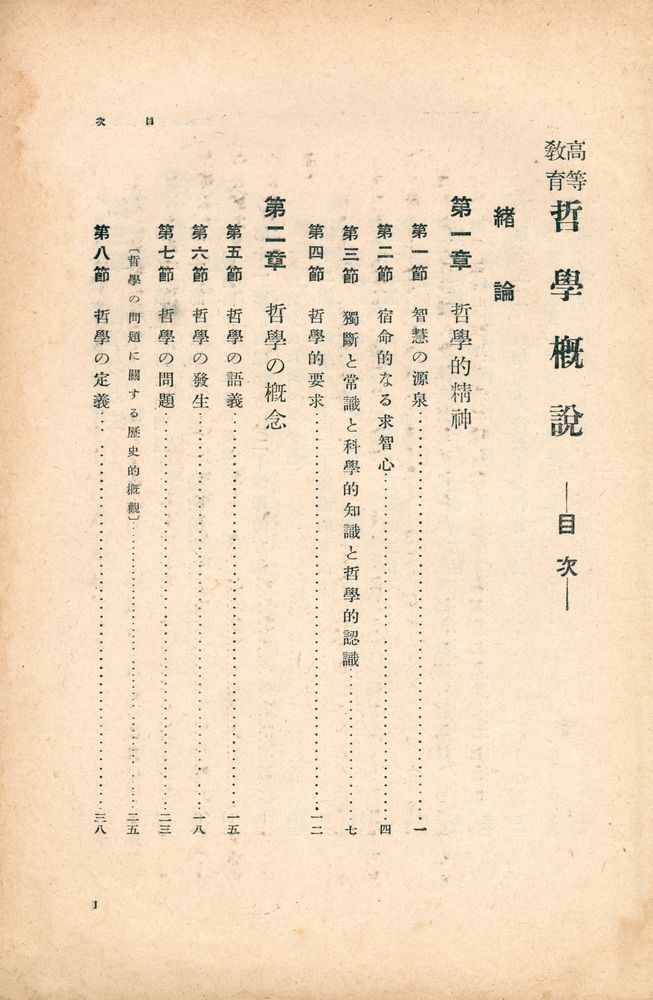 高等教育 哲學概說 ―目次―
緒論
第一章 哲學的精神
第一節 智慧の源泉……一
第二節 宿命的なる求智心……四
第三節 獨斷と常識と科學的知識と哲學的認識……七
第四節 哲學的要求……一二
第二章 哲學の概念
第五節 哲學の語義……一五
第六節 哲學の發生……一八
第七節 哲學の問題……二三
〔哲學の問題に關する歷史的概觀〕……二五
第八節 哲學の定義……三八
目次
1